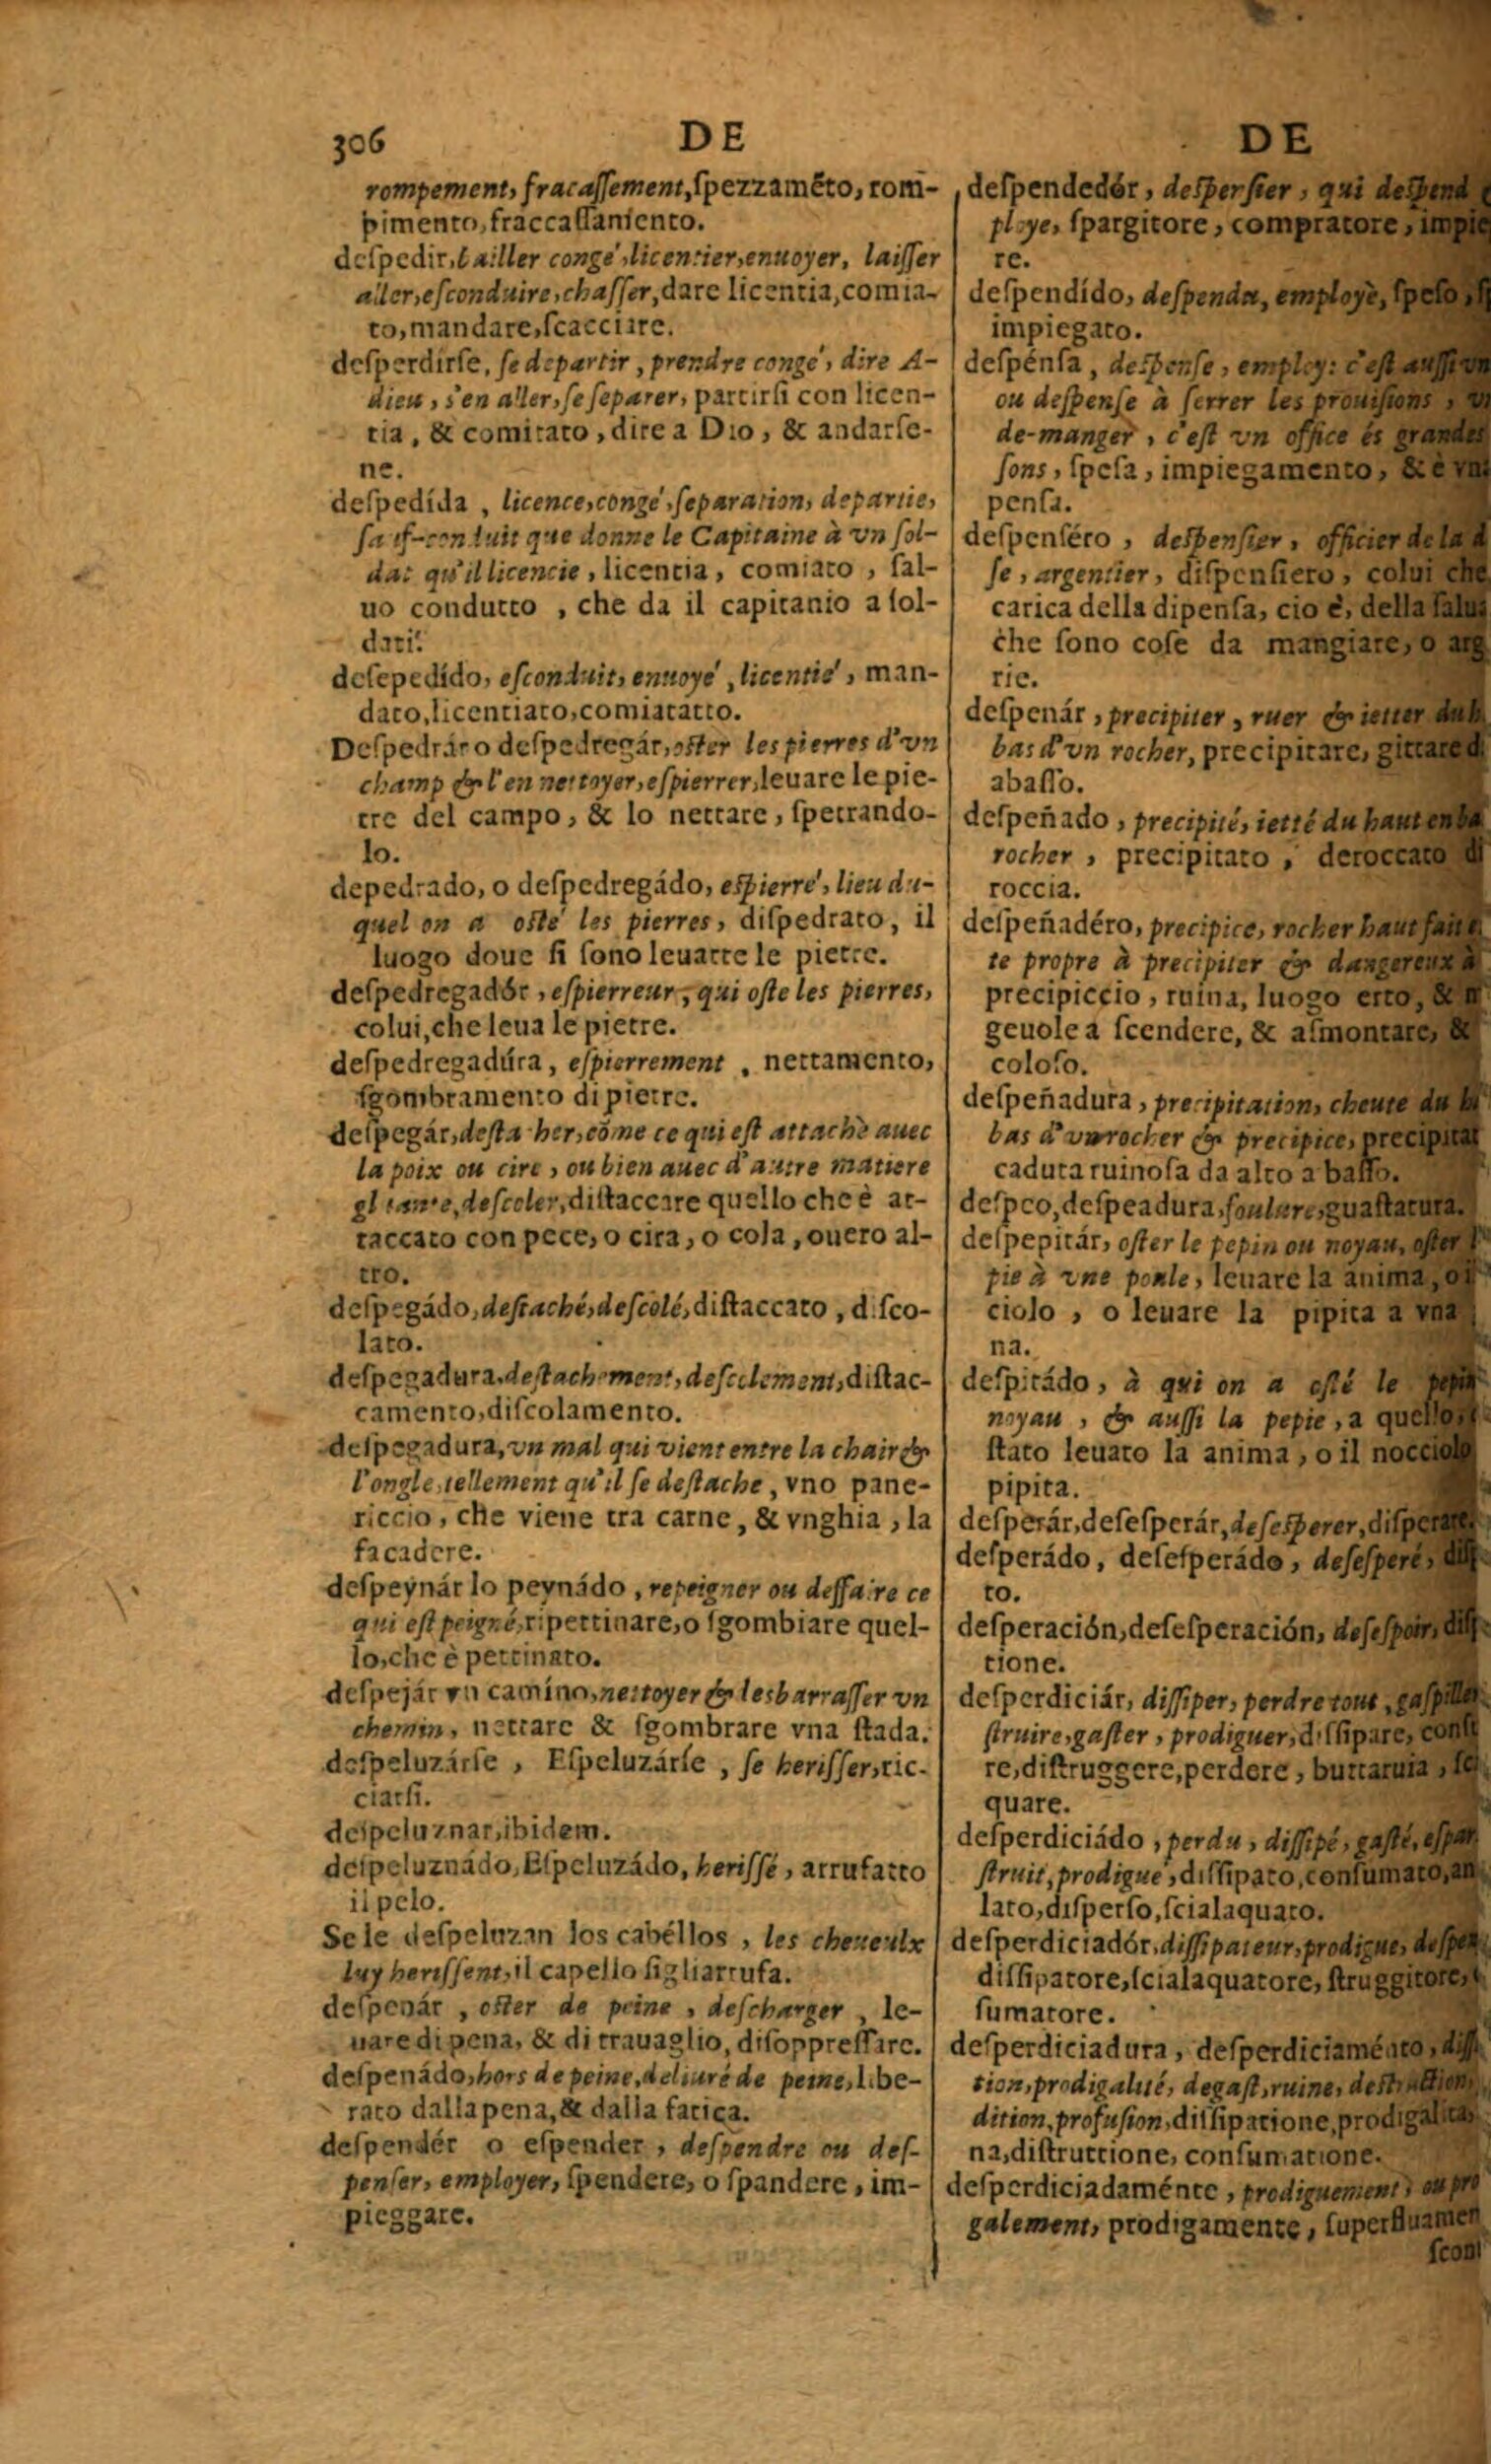 306
DE
rompement, fracaſſement, ſpezzamẽto, rom-
pimento, fraccaſſamento.
deſpedir, bailler congé, licentier, enuoyer, laiſſer
aller, eſconduire, chaſſer, dare licentia, comia-
to, mandare, ſcacciare.
deſperdirſe, ſe departir, prendre congé, dire A-
dieu, s'en aller, ſe ſeparer, partirſi con licen-
tia, & comiato, dire a Dio, & andarſe-
ne.
deſpedída, licence, congé, ſeparation, departie,
ſauf-conduit que donne le Capitaine à vn ſol-
dat qu'il licencie, licentia, comiato, ſal-
uo condutto, che da il capitanio a ſol-
dati.
deſepedído, eſconduit, enuoyé, licentié, man-
dato, licentiato, comiatatto.
Deſpedrár o deſpedregár, oſter les pierres d'vn
champ & l'en nettoyer, eſpierrer, leuare le pie-
tre del campo, & lo nettare, ſpetrando-
lo.
depedrado, o deſpedregádo, eſpierré, lieu du-
quel on a oſté les pierres, diſpedrato, il
luogo doue ſi ſono leuatte le pietre.
deſpedregadór, eſpierreur, qui oſte les pierres,
colui, che leua le pietre.
deſpedregadúra, eſpierrement, nettamento,
ſgombramento di pietre.
deſpegár, deſtacher, cõme ce qui eſt attaché auec
la poix ou cire, ou bien auec d'autre matiere
gluante, deſcoler, diſtaccare quello che è at-
taccato con pece, o cira, o cola, ouero al-
tro.
deſpegádo, deſtaché, deſcolé, diſtaccato, diſco-
lato.
deſpegadura, deſtachement, deſcolement, diſtac-
camento, diſcolamento.
deſpegadura, vn mal qui vient entre la chair &
l'ongle, tellement qu'il ſe deſtache, vno pane-
riccio, che viene tra carne, & vnghia, la
fa cadere.
deſpeynár lo peynádo, repeigner ou deffaire ce
qui eſt peigné, ripettinare, o ſgombiare quel-
lo, che è pettinato.
deſpejár vn camíno, nettoyer & desbarraſſer vn
chemin, nettare & ſgombrare vna ſtada.
deſpeluzárſe, Eſpeluzárſe, ſe heriſſer, ric-
ciarſi.
deſpeluznar, ibidem.
deſpeluznádo, Eſpeluzádo, heriſſé, arrufatto
il pelo.
Se le deſpeluzan los cabéllos, les cheueulx
luy heriſſent, il capello ſigli arrufa.
deſpenár, oſter de peine, deſcharger, le-
uare di pena, & di trauaglio, diſoppreſſare.
deſpenádo, hors de peine, deliuré de peine, libe-
rato dalla pena, & dalla fatica.
deſpendér o eſpender, deſpendre ou deſ-
penſer, employer, ſpendere, o ſpandere, im-
pieggare.
DE
deſpendedór, deſpenſier, qui deſpend
ploye, ſpargitore, compratore, impie
re.
deſpendído, deſpendu, employè, ſpeſo,
impiegato.
deſpénſa, deſpenſe, employ: c'eſt auſſi vn
ou deſpenſe à ſerrer les prouiſions,
de-manger, c'eſt vn office és grandes
ſons, ſpeſa, impiegamento, & è vna
penſa.
deſpenſéro, deſpenſier, officier de la d
ſe, argentier, diſpenſiero, colui che
carica della dipenſa, cio è, della ſalua
che ſono coſe da mangiare, o arg
rie.
deſpenár, precipiter, ruer & ietter du h
bas d'vn rocher, precipitare, gittare d
abaſſo.
deſpeñado, precipité, ietté du haut en ba
rocher, precipitato, deroccato di
roccia.
deſpeñadéro, precipice, rocher haut fait
te propre à precipiter & dangereux à
precipiccio, ruina, luogo erto, &
geuole a ſcendere, & aſmontare, &
coloſo.
deſpeñadura, precipitation, cheute du
bas d'vn rocher & precipice, precipitat
caduta ruinoſa da alto a baſſo.
deſpeo, deſpeadura, foulure, guaſtatura.
deſpepitár, oſter le pepin ou noyau, oſter
pie à vne poule, leuare la anima, o
ciolo, o leuare la pipita a vna
na.
deſpitádo, à qui on a oſté le pepin
noyau, & auſſi la pepie, a quello,
ſtato leuato la anima, o il nocciolo
pipita.
deſperár, deſeſperár, deſeſperer, diſperare.
deſperádo, deſeſperádo, deſeſperé, diſ
to.
deſperación, deſeſperación, deſeſpoir, diſ
tione.
deſperdiciár, diſſiper, perdre tout, gaſpiller
ſtruire, gaſter, prodiguer, diſſipare, conſ
re, diſtruggere, perdere, buttaruia,
quare.
deſperdiciádo, perdu, diſſipé, gaſté, eſpar
ſtruit, prodigué, diſſipato, conſumato, an
lato, diſperſo, ſcialaquato.
deſperdiciadór, diſſipateur, prodigue, deſpen
diſſipatore, ſcialaquatore, ſtruggitore,
ſumatore.
deſperdiciadura, deſperdiciaménto, diſſi
tion, prodigalité, degaſt, ruine, deſtruction,
dition, profuſion, diſſipatione, prodigalita,
na, diſtruttione, conſumatione.
deſperdiciadaménte, prodiguement, ou pro
galement, prodigamente, ſuperfluamen